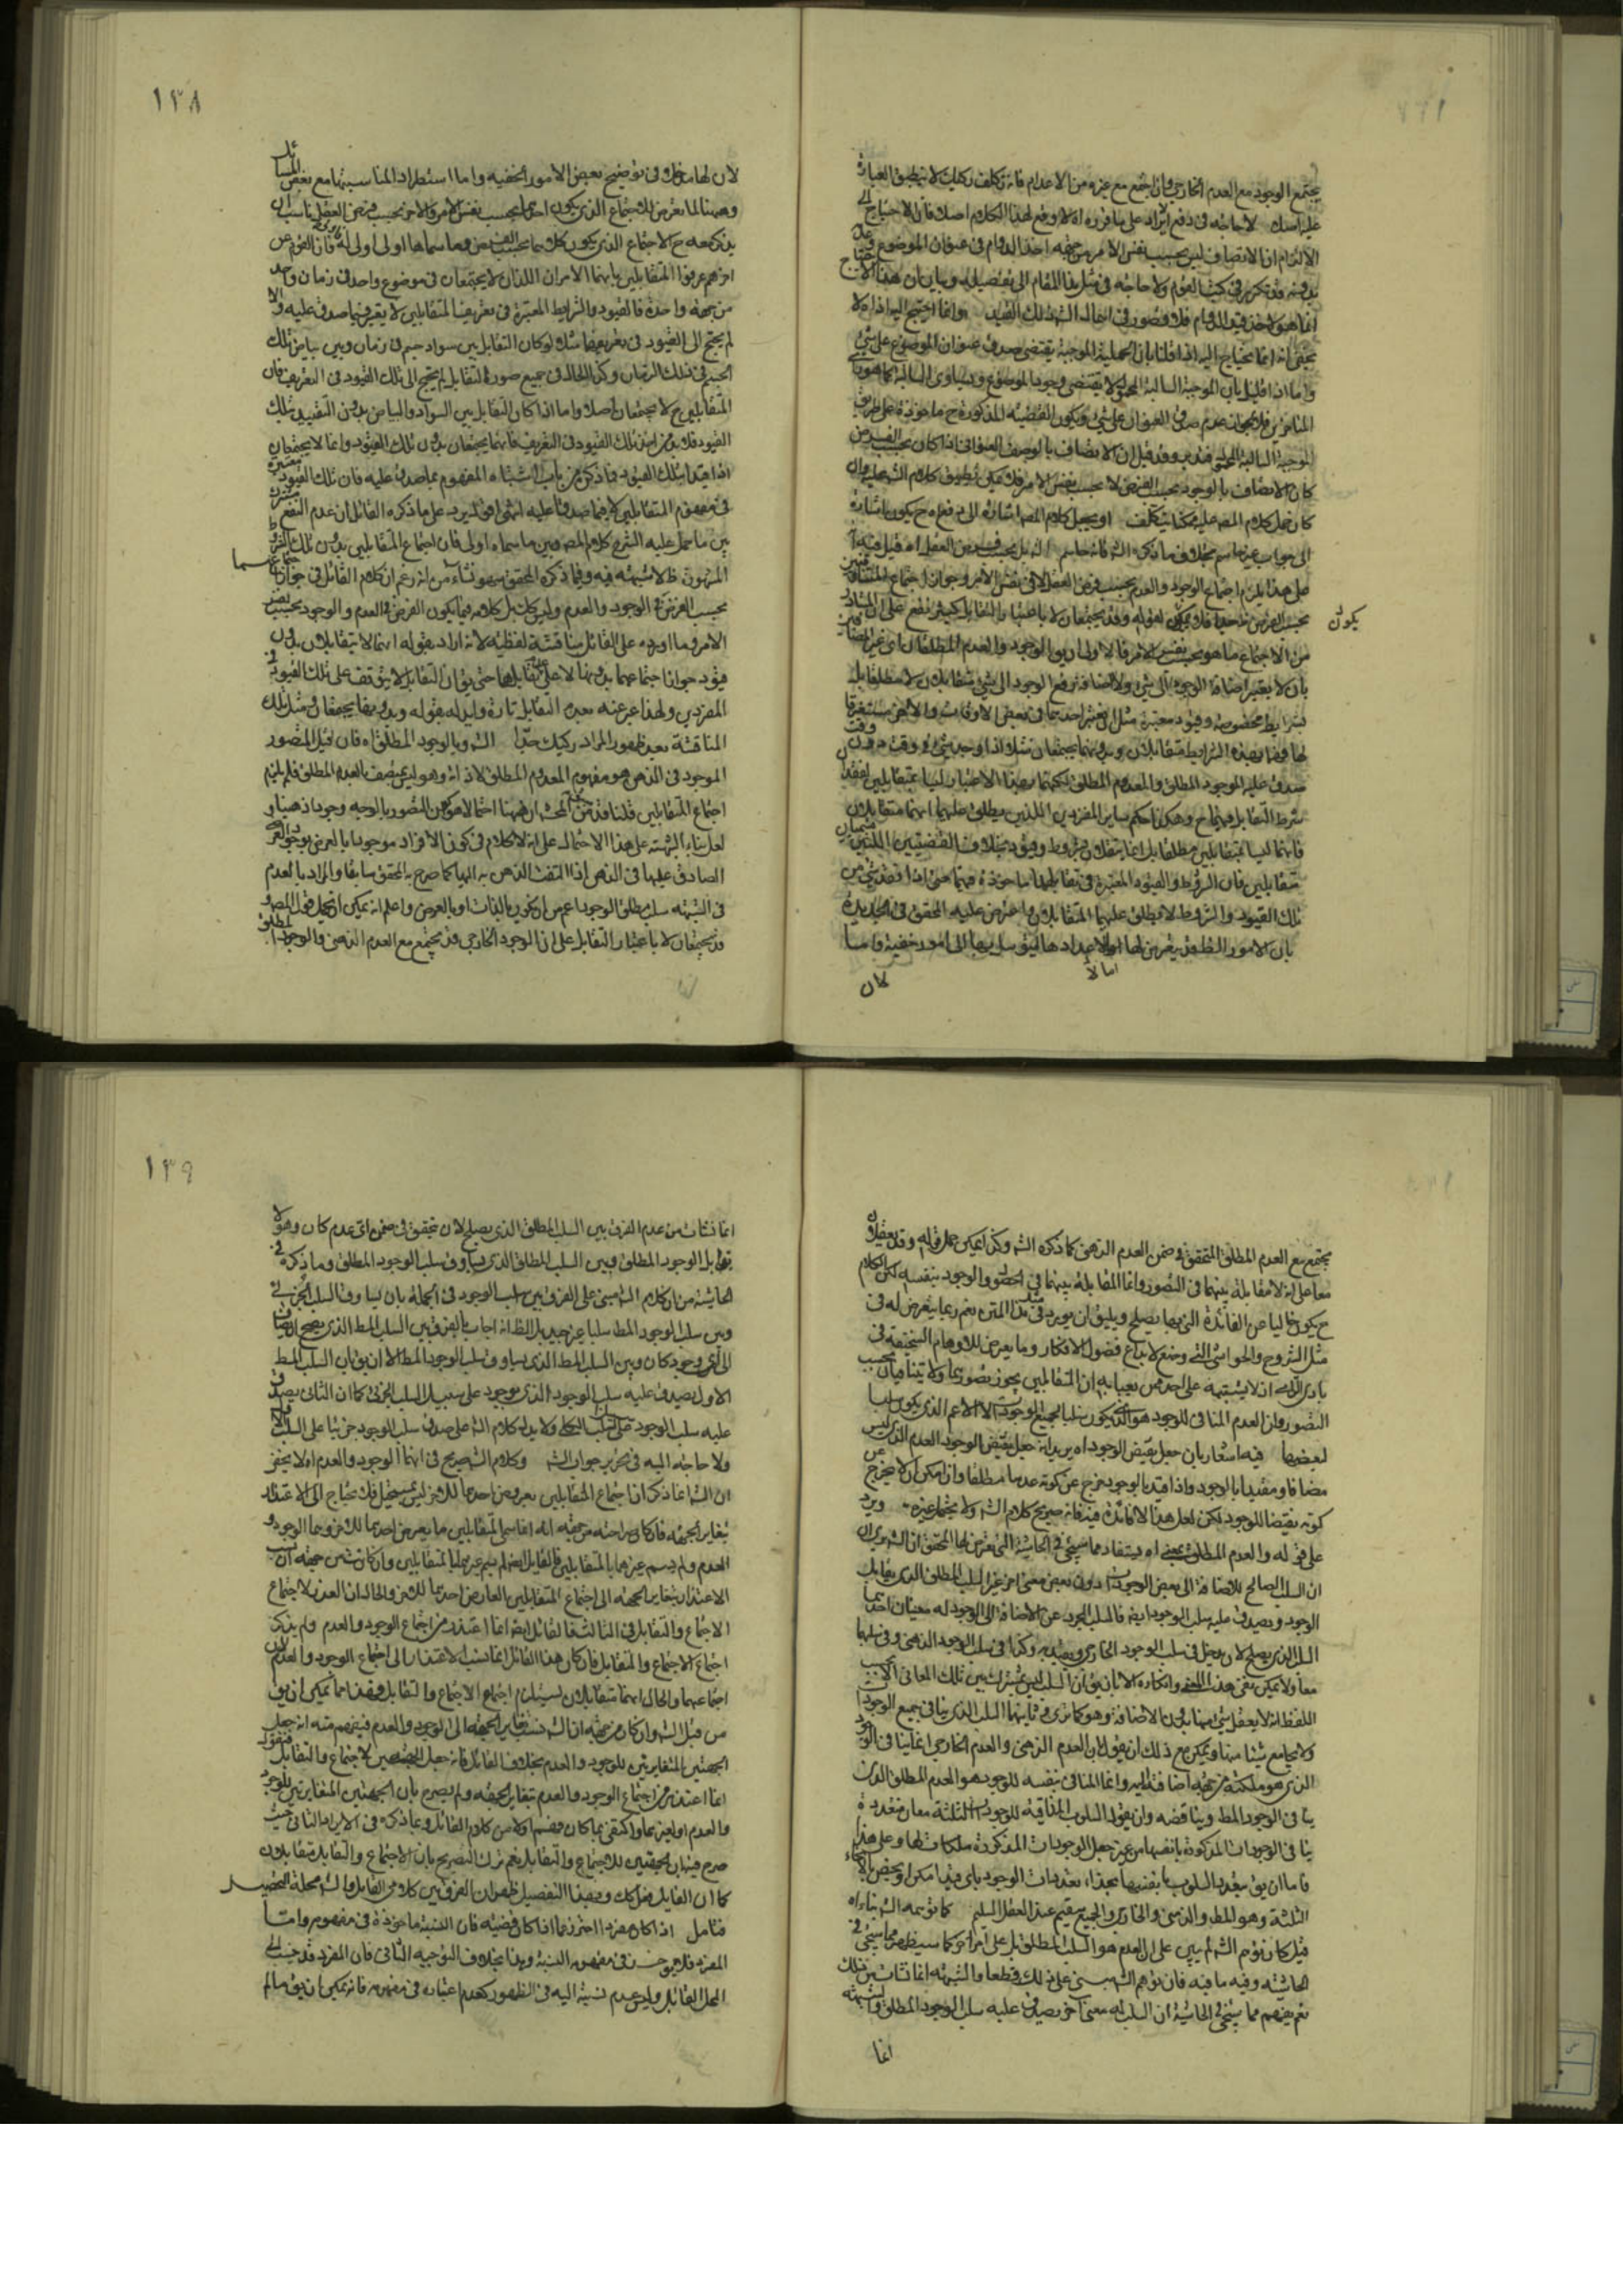 يجتمع الوجود مع العدم الخارجي وان اجتمع مع غيره من الاعدام فانه تكلف ركيك لا ينطبق العبارة
عليه اصلا لا حاجة في دفع الايراد على ما قرره اه لا وقع لهذا الكلام اصلا فان الاحتياج الى
الالتزام ان الاتصاف ليس بحسب نفس الامر من جهة اخذ الدوام في عنوان الموضوع
في كتب القوم ولا حاجة في مثل هذا المقام الى تفصيله وبيان ان هذا الاحتياج
انما هو لاخذ قيد الدوام فلا قصور في اخال الشه ذلك القيد وانما احتيج اليه اذ لا
يخفى انه انما يحتاج اليه اذا قلنا بان الحملية الموجبة يقتضي صدق عنوان الموضوع على شئ
واما اذا قيل بان الموجبة السالبة المحمول لا يقتضي وجود الموضوع ويساوي السالبة كما هو راى
المتاخرين فلا يجوز عدم صدق العنوان على شئ ويكون القضية المذكورة ح ماخوذة على طريق
الموجبة السالبة المحمول وقد قيل ان الاتصاف بالوصف العنواني اذا كان بحسب الفرض
كان الاتصاف بالوجود بحسب الفرض لا بحسب نفس الامر فلا يمكن تطبيق كلام الشه عليه وان
كان حمل كلام المصه عليه ممكنا بتكلف او يجعل كلام المصه اشارة الى دفع اه ح يكون اشارة
الى جواب غير حاسم بخلاف ما ذكره الشه فانه حاسم بل بحسب فرض العقل اه قيل فيه
على هذا يلزم اجتماع الوجود والعدم بحسب فرض العقل لا في نفس الامر وجواز اجتماع المتنافيين
يكون
من الاجتماع ما هو بحسب نفس الامر فالاولى ان يق الوجود والعدم المطلقان
بان لا يعتبر اضافة الوجود الى شئ ولا اضافة رفع الوجود الى شئ متقابلان لا مطلقا بل
بشرايط مخصوصة وقيود معتبرة مثل ان يعتبر احدهما في بعض الاوقات والاخر مستغرقا
لها فهما بهذه الشرايط متقابلان وبدونها يجتمعان مثلا اذا وجد شئ في وقت دون وقت
صدق عليه الموجود المطلق والمعدوم المطلق لكنهما بهذا الاعتبار ليسا بمتقابلين لفقد
شرط التقابل فيهما ح وهكذا حكم ساير المفردين اللذين يطلق عليهما انهما متقابلان
فانهما ليسا بمتقابلين مطلقا بل انما يتقابلان بشروط وقيود بخلاف القضيتين اللتين تسميان
متقابلين فان الشروط والقيود المعتبرة في تقابلهما ماخوذة فيهما حتى اذا فقد شئ من
تلك القيود والشروط لا يطلق عليهما المتقابلان واعترض عليه المحقق في الجديدة
بان الامور الظاهرة يتعرض لها اما لاعدادها ليتوسل بها الى امور خفية واما
لان
١٣٨
لان لها مدخلا في توضيح بعض الامور الخفية واما استطرادا لمناسبتها مع بعض المسائل
وههنا لما تعرض للاجتماع الذي يكون احدهما بحسب نفس الامر والاخر بحسب فرض العقل ناسب ان
يذكر معه ح الاجتماع الذي يكون كلاهما بحسب الفرض وما سماها اولى اولى له فان القوم عن
اخرهم عرفوا المتقابلين بانهما الامران اللذان لا يجتمعان في موضوع واحد في زمان واحد
من جهة واحدة فالقيود والشرايط المعتبرة في تعريف المتقابلين لا يعتبر فيما صدق عليه والا
لم يحتج الى القيود في تعريفهما مثلا لو كان التقابل بين سواد جسم في زمان وبين بياض ذلك
الجسم في ذلك الزمان وكذا الحال في جميع صورة التقابل لم يحتج الى تلك القيود في التعريف فان
المتقابلين ح لا يجتمعان اصلا واما اذا كان التقابل بين السواد والبياض بدون التقييد بتلك
القيود فلا بد من اخذ تلك القيود في التعريف فانهما يجتمعان بدون تلك القيود وانما لا يجتمعان
اذا قيدا بتلك القيود فما ذكره من باب اشتباه المفهوم بما صدق عليه فان تلك القيود معتبرة
في مفهوم المتقابلين لا فيما صدقا عليه انتهى اقول يرد على ما ذكره القائل ان عدم التعرض
بين ما حمل عليه الشرح كلام المصه وبين ما سماه اولى فان اجتماع المتقابلين بدون تلك الشروط
المزبورة ظ لا شبهة فيه وفيما ذكره المحقق سهو نشأ من انه زعم ان كلام القائل في جواز اجتماعهما
بحسب الفرض في الوجود والعدم وليس كك بل كلامه فيما يكون الفرض في العدم والوجود بحسب نفس
الامر وما اورده على القائل مناقشة لفظية لانه اراد بقوله انهما لا يتقابلان بدون
قيود جواز اجتماعهما بدونها لا عدم تقابلهما حتى يق ان التقابل لا يتوقف على تلك القيود في
المفردين ولهذا عبر عنه بعدم التقابل تارة وابدله بقوله وبدونها يجتمعان ومثل تلك
المناقشة بعد ظهور المراد ركيك جدا الشه وبالوجود المطلق اه فان قيل المتصور
الموجود في الذهن هو مفهوم المعدوم المطلق لا ذاته وهو ليس بمتصف بالعدم المطلق فلم يلزم
اجتماع المتقابلين قلنا قد من المحشه ان ههنا احتمالا هو كون المتصور بالوجه وجودا ذهنيا و
لعل بناء الشبهة على هذا الاحتمال على انه لا كلام في كون الافراد موجودا بالعرض بوجود الوجه
الصادق عليها في الذهن اذا التفت الذهن به اليها كما صرح به المحقق سابقا والمراد بالعدم
في الشبهة سلب مطلق الوجود اعم من ان يكون بالذات او بالعرض واعلم انه يمكن ان يحمل قول المصه و
قد يجتمعان لا باعتبار التقابل على ان الوجود الخارجي قد يجتمع مع العدم الذهني والوجود المطلق
يجتمع مع العدم المطلق المتحقق في ضمن العدم الذهني كما ذكره الشه وكذا يمكن حمل قوله وقد يعقلان
معا على انه لا مقابلة بينهما في التصور وانما المقابلة بينهما في الوجود بنفسه لكن الكلام
ح يكون خاليا عن الفائدة التي بها يصلح ويليق ان يورد في مثل هذا المتن نعم ربما يتعرض له في
مثل الشروح والحواشي التي وضع لايداع فضول الافكار وما يعرض للاوهام السخيفة في
بادي الراى اذ لا يشتبه على احد ممن يعبا به ان المتقابلين يجوز تصورهما ولا يتنافيان بحسب
التصور وان العدم المنافي للوجود هو الذي يكون سلبا لجميع الوجودات لا الاعم الذي يكون سلبا
لبعضها فيه اشعار بان جعل نقيض الوجود اه يريد انه جعل نقيض الوجود العدم الذي ليس
مضافا ومقيدا بالوجود واذا قيد بالوجود يخرج عن كونه عدما مطلقا وان امكن ان لا يخرج عن
كونه نقيضا للوجود لكن لعل هذا لا فائدة فيه فانه صريح كلام الشه ولا يحتمل غيره ويرد
على قوله والعدم المطلق بمعنى اه يستفاد مما سيجئ في الحاشية التي تعرض لها المحقق ان الشه يرى ان
ان السلب الصالح للاضافة الى بعض الوجودات دون بعض معنى اخر غير السلب المطلق الذي يقابل
الوجود ويصدق عليه سلب الوجود ايضا فالسلب المجرد عن الاضافة الى الوجود له معنيان احدهما
السلب الذي يصلح لان يدخل في سلب الوجود الخارجي ويقيد به وكذا في سلب الوجود الذهني وفي سلبهما
معا ولا يمكن نفي هذا المعنى وانكاره الا بان يق ان السلب ليس مشترك بين تلك المعاني الا بحسب
اللفظ اذ لا يعقل شئ منها بدون الاضافة وهو كما ترى وثانيهما السلب الذي ينافي جميع الوجود
ولا يجامع شيئا منها ويمكن مع ذلك ان يقول ان العدم الذهني والعدم الخارجي انما ينافي الوجود
الذي هو ملكته من جهة اضافته اليه وانما المنافي بنفسه للوجود هو العدم المطلق الذي
ينافي الوجود المط ويناقضه وان يقول السلوب المنافية للوجودات الثلثة معان متعددة
ينافي الوجودات المذكورة بانفسها من غير جعل الوجودات المذكورة ملكات لها وعلى هذا
فاما ان يق بتعدد السلوب بانفسها بحذاء تعددات الوجود باي قيد امكن او يخص بالانحاء
الثلثة وهو المط والذهني والخارجي والجميع سقيم عند العقل السليم كما توهمه الشه بناء اه
قيل كان توهم الشه لم يبن على ان العدم هو السلب المطلق بل على امر اخر كما سيظهر مما سيجئ في
الحاشية وفيه ما فيه فان توهم الشه مبني على ذلك قطعا والشبهة انما نشات من ذلك
نعم يفهم مما سيجئ في الحاشية ان السلب له معنى اخر يصدق عليه سلب الوجود المطلق والشبهة
انما
١٣٩
انما نشات من عدم الفرق بين السلب المطلق الذي يصلح لان يتحقق في ضمن اى عدم كان وهو لا
يقابل الوجود المطلق وبين السلب المطلق الذي يساوق سلب الوجود المطلق وما ذكره في
الحاشية من ان كلام الشه مبني على الفرق بين سلب الوجود في الجملة بان يساوق السلب الجزئي
وبين سلب الوجود المط سلبا غير جيد بل الظ انه اجاب بالفرق بين السلب المط الذي يصح ان يضاف
الى اى وجود كان وبين السلب المط الذي يساوق سلب الوجود المط الا ان يق بان السلب المط
الاول يصدق عليه سلب الوجود الذي يوجد على سبيل السلب الجزئي كما ان الثاني يصدق
عليه سلب الوجود على السلب الكلي ولا يدل كلام الشه على صدق سلب الوجود جزئيا على السلب
ولا حاجة اليه في تحرير جواب الشه وكلام الشه صريح في انهما الوجود والعدم اه لا يخفى
ان الشه انما ذكر ان اجتماع المتقابلين بعروض احدهما للاخر ليس بمستحيل فلا يحتاج الى الاعتذار
بتغاير الجهة فان كان صراحته من جهة انه انما سمى المتقابلين ما يعرض احدهما للاخر وهما الوجود و
العدم ولم يسم غيرهما بالمتقابلين فالقائل ايضا لم يسم غيرهما بالمتقابلين وان كانت من جهة ان نسب
الاعتذار بتغاير الجهة الى اجتماع المتقابلين العارض احدهما للاخر والحال ان العذر لاجتماع
الاجتماع والتقابل في المتالث فالقائل ايضا انما اعتذر عن اجتماع الوجود والعدم ولم يذكر
اجتماع الاجتماع والتقابل فان كان هذا القائل انما نسب الاعتذار الى اجتماع الوجود والعدم لان
اجتماعهما والحال انهما متقابلان يستلزم اجتماع الاجتماع والتقابل فهذا مما يمكن ان يق
من قبل الشه وان كان من جهة ان الشه نسب تغاير الجهة الى الوجود والعدم فيفهم منه انه جعل
الجهتين المتغايرتين للوجود والعدم بخلاف القائل فانه جعل الجهتين لاجتماع والتقابل فنقول
انما اعتذر عن اجتماع الوجود والعدم بتغاير الجهة ولم يصرح بان الجهتين المتغايرتين للوجود
والعدم او لغيرهما واكتفى بما كان يفهم اولا من كلام القائل وبما ذكره في الايراد الثاني حيث
صرح فيه بان الجهتين للاجتماع والتقابل نعم ترك التصريح بان الاجتماع والتقابل متقابلان
كما ان القائل فعل كك وبهذا التفصيل ظهر ان الفرق بين كلامي القائل والشه محلة التخصيص
فتامل اذا كان مفردا احترز عما اذا كان قضية فان النسبة ماخوذة في مفهومه واما
المفرد فلا يوخذ في مفهومه النسبة وهذا بخلاف التوجيه الثاني فان المفرد قد ينسب الى
المحل القابل وليس عدم نسبة اليه في الظهور كعدم اعتباره في مفهومه فانه يمكن ان يق ما لم